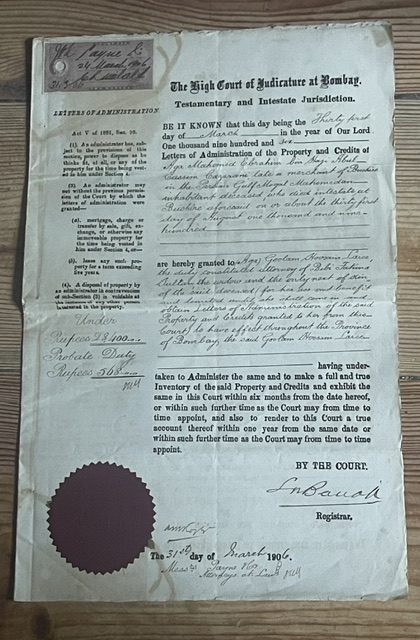 Payne &
24 March 1906
31.3.06
LETTERS OF ADMINISTRATION
Act V of 1881, Sec. 90.
(1). An administrator has, subject to the provisions of this section, power to dispose as he thinks fit, of all, or any of the property for the time being vested in him under Section 4.
(2). An administrator may not without the previous permission of the Court by which the letters of administration were granted—
(a). mortgage, charge or transfer by sale, gift, exchange, or otherwise any immoveable property for the time being vested in him under Section 4, or—
(b). lease any such property for a term exceeding five years.
(4). A disposal of property by an administrator in contravention of sub-Section (2) is voidable at
Under
Rupees 28400
Probate Duty
Rupees 568
The High Court of Judicature at Bombay.
Testamentary and Intestate Jurisdiction.
BE IT KNOWN that this day being the Thirty first
day of March in the year of Our Lord
One thousand nine hundred and six
Letters of Administration of the Property and Credits of
Aga Mahomed Ebrahim bin Haji Abul
Cassim Cazerani late a merchant of Bushire
in the Persian Gulf Mogul Mahomedan
inhabitant deceased who died intestate at
Bushire aforesaid on or about the thirty first
day of August one thousand and nine
hundred
are hereby granted to Aga Goolam Hoosein Laree
the duly constituted attorney of Bibi Fatma
Sultan the widow and the only next of kin
of the said deceased for her use and benefit
and limited until she shall come in and
obtain Letters of Administration of the said
Property and Credits granted to her from this
Court to have effect throughout the Province
of Bombay, the said Goolam Hoosein Laree
having under-
taken to Administer the same and to make a full and true
Inventory of the said Property and Credits and exhibit the
same in this Court within six months from the date hereof,
or within such further time as the Court may from time to
time appoint, and also to render to this Court a true
account thereof within one year from the same date or
within such further time as the Court may from time to time
appoint.
BY THE COURT.
Registrar.
The 31st day of March 1906.
Messrs Payne & Co
Attorneys at Law